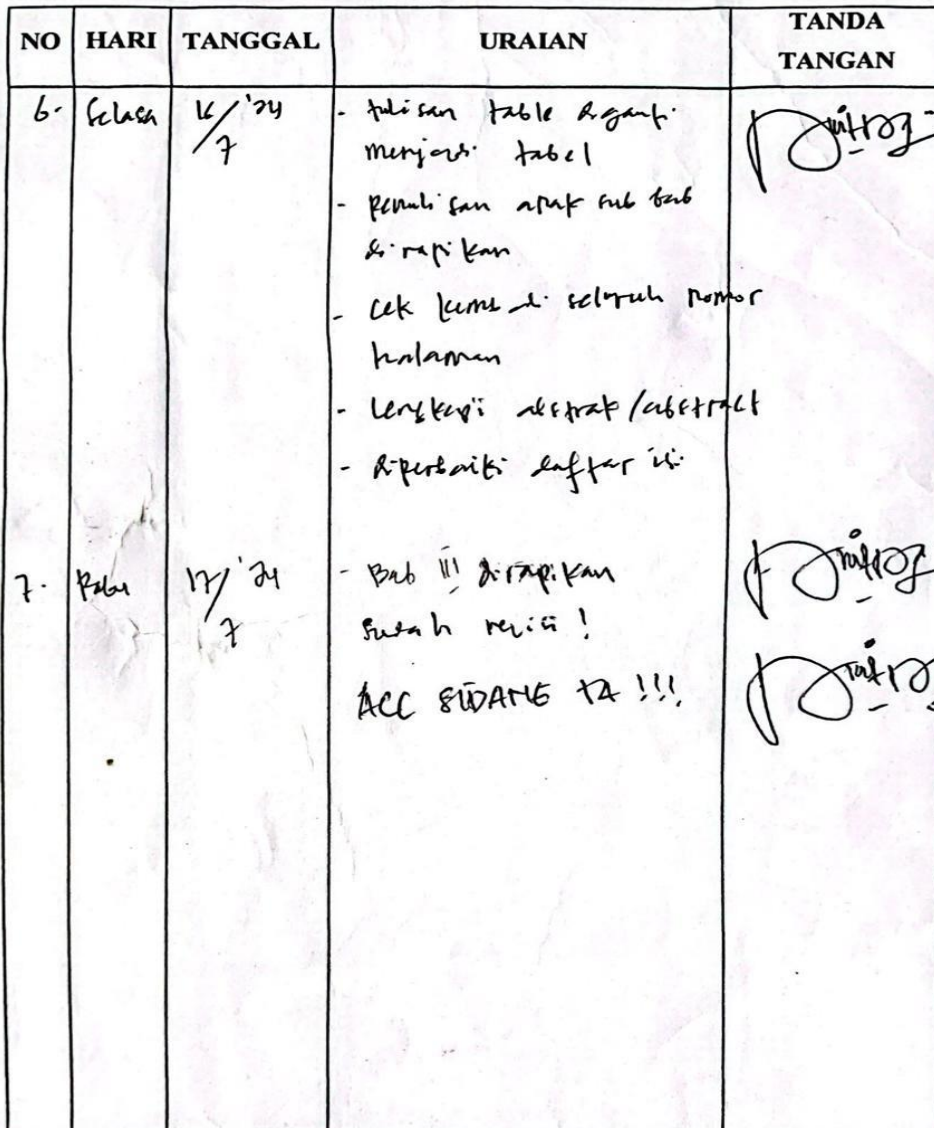 NO HARI TANGGAL URAIAN TANDA TANGAN
6. Selasa 16/7 '24 - tulisan table diganti
menjadi tabel
- penulisan anak sub bab
dirapikan
- cek kembali seluruh nomor
halaman
- lengkapi abstrak/abstract
- diperbaiki daftar isi
7. Rabu 17/7 '24 - Bab III dirapikan
sudah revisi!
ACC SIDANG TA!!!